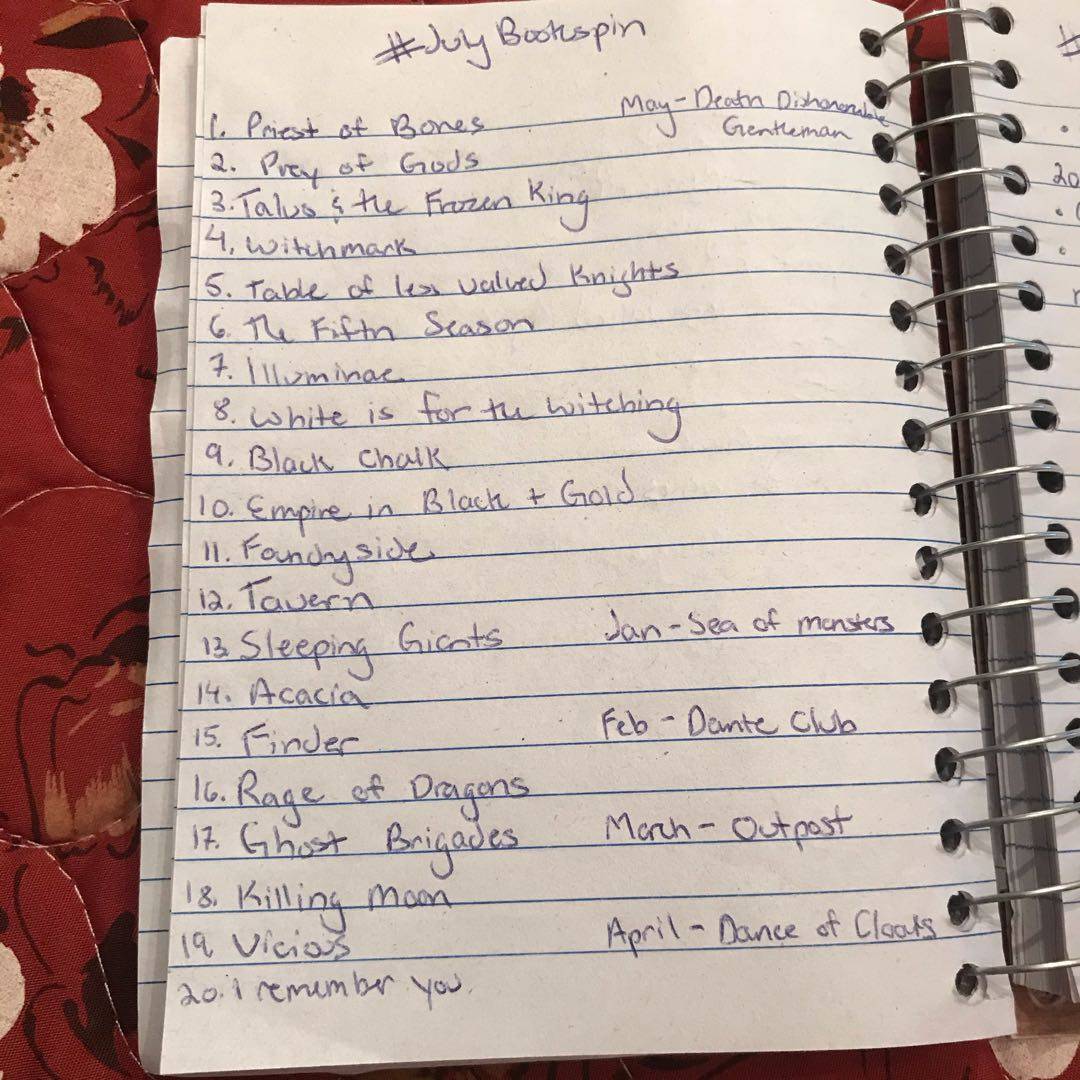 #July Bookspin
1. Priest of Bones
May - Death Dishonorable
Gentleman
2. Prey of Gods
3. Talus & the Frozen King
4. Witchmark
5. Table of less valued Knights
6. The Fifth Season
7. Illuminae
8. White is for the witching
9. Black Chalk
10. Empire in Black + Gold
11. Foundryside
12. Tavern
13. Sleeping Giants
Jan - Sea of monsters
14. Acacia
15. Finder
Feb - Dante Club
16. Rage of Dragons
17. Ghost Brigades
March - Outpost
18. Killing Moon
19. Vicious
April - Dance of Cloaks
20. I remember you.
#
20